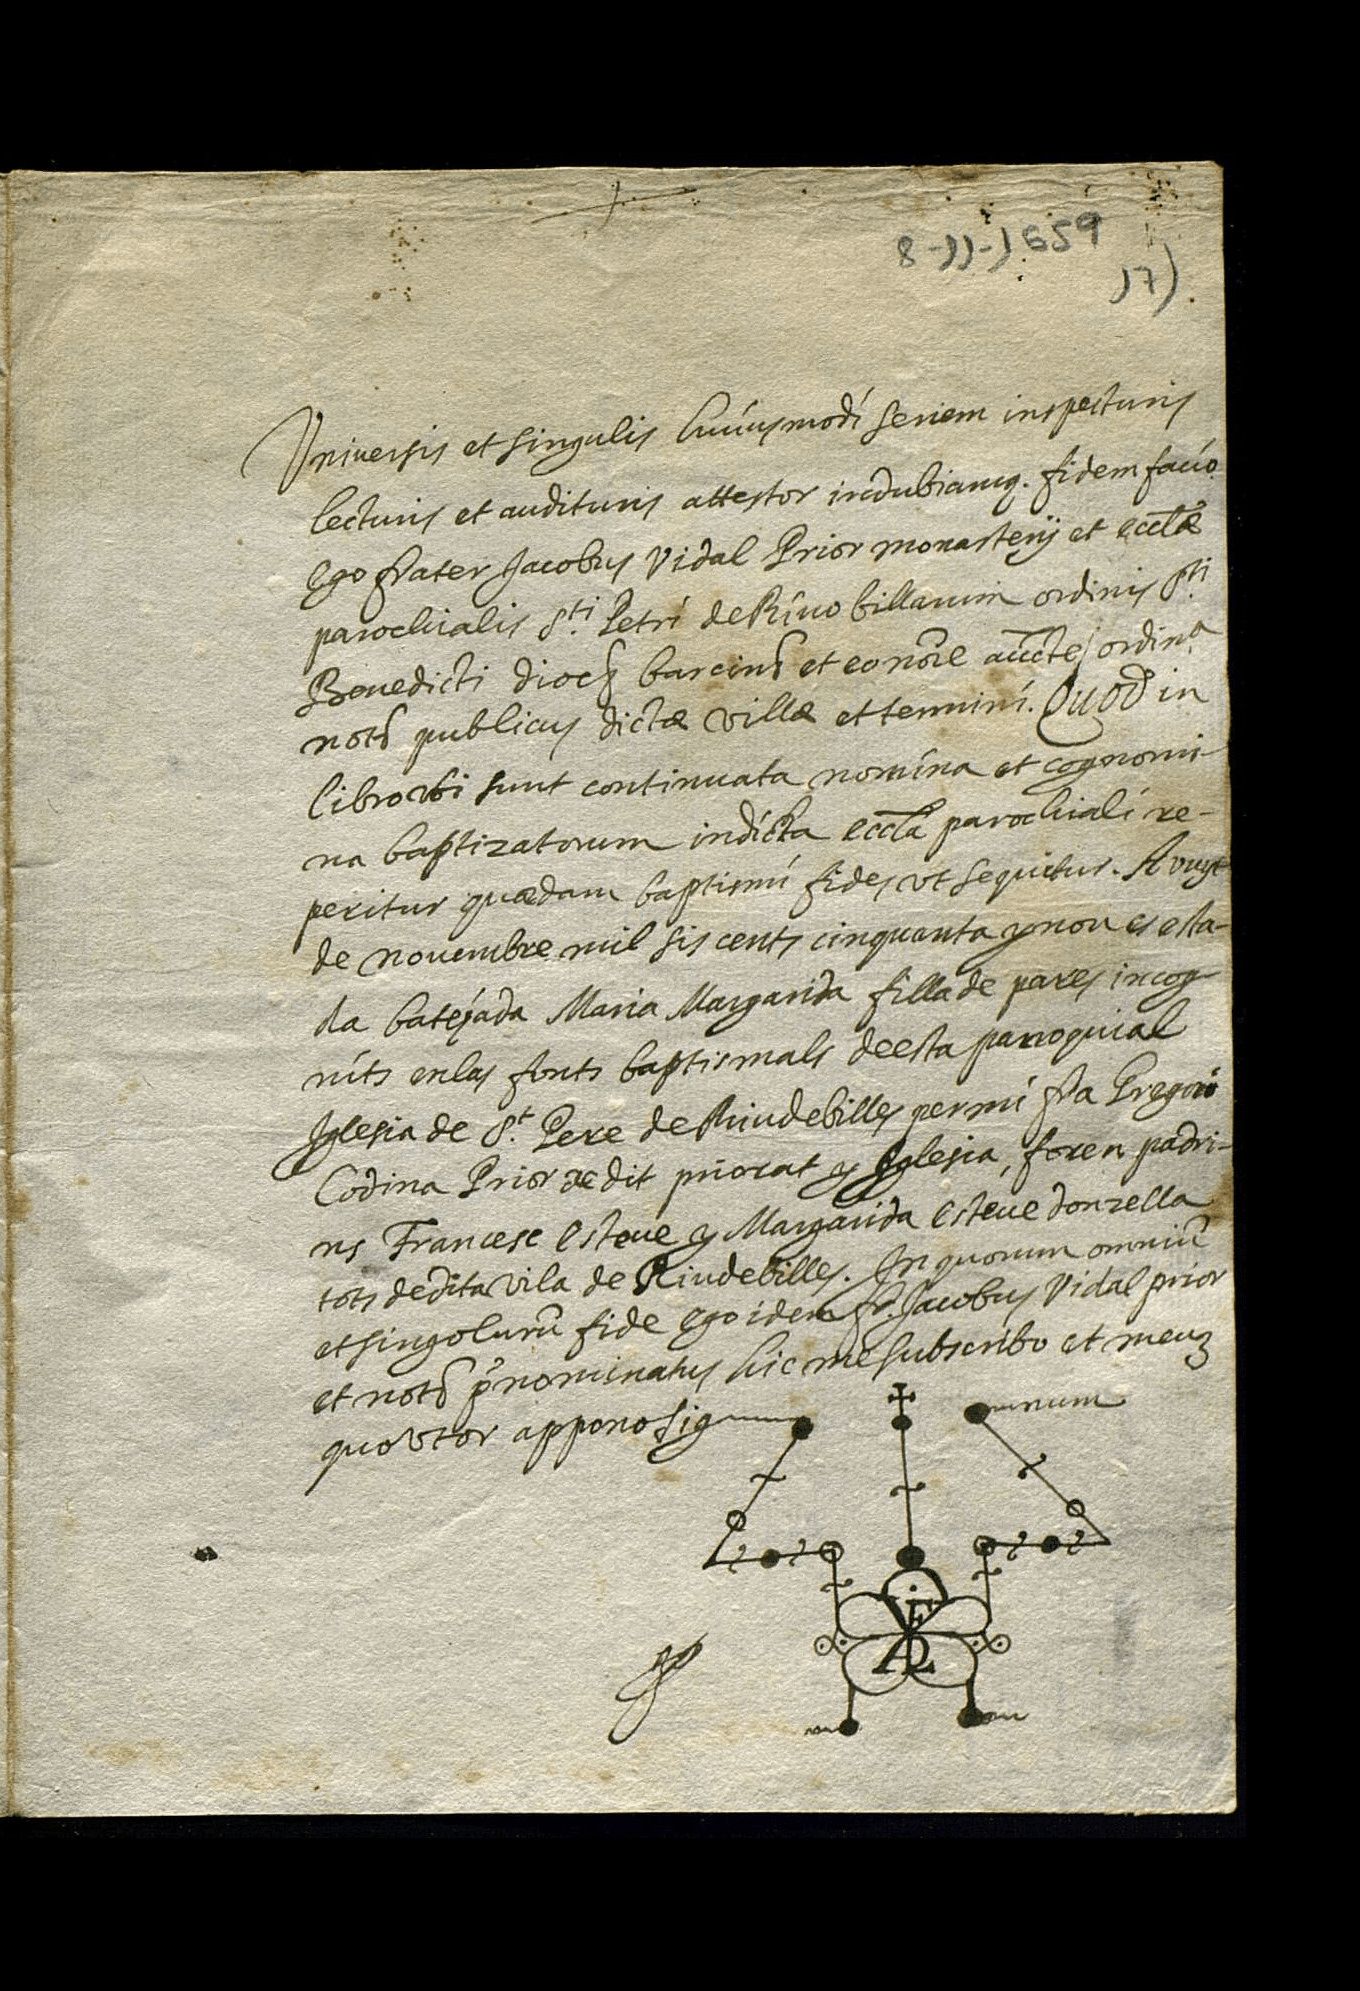 8-11-1659
17)
Vniversis et singulis huiusmodi seriem inspecturis
lecturis et audituris attestor indubiamq. fidem facio
Ego frater Jacobus Vidal Prior monasterij et ecclæ
parochialis S.ti Petri de Rivo billarum ordinis S.ti
Benedicti dioc barcins et eo noīe aucte ordin.a
nots publicus dictæ villæ et termini. Quod in
libro vbi sunt continuata nomina et cognomi-
na baptizatorum in dicta eccla parochiali re-
peritur quædam baptismi fides vt sequitur. A vuyt
de novembre mil sis cents cinquanta y nou es esta-
da batejada Maria Margarida filla de pares incog-
nits en las fonts baptismals de esta parroquial
Iglesia de S.t Pere de Riudebilles per mi fra Gregori
Codina Prior de dit priorat y Iglesia, foren padri-
ns Francesc Esteve y Margarida Esteve donzella
tots de dita vila de Riudebilles. In quorum omniū
et singolurū fide Ego idem fr. Jacobus Vidal prior
et nots p̄nominatus hic me subscribo et meuz
quo vtor appono sig num